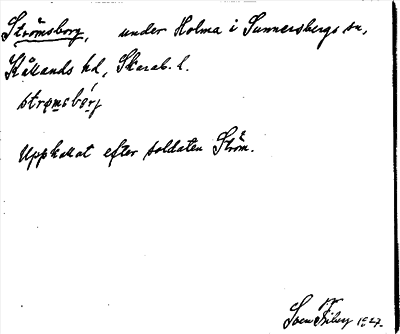 Strömsborg, under Holma i Sunnersbergs sn,
Kållands hd, Skarab. l.
strømsbórj
Uppkallat efter soldaten Ström.
Sven Fribey 1927.